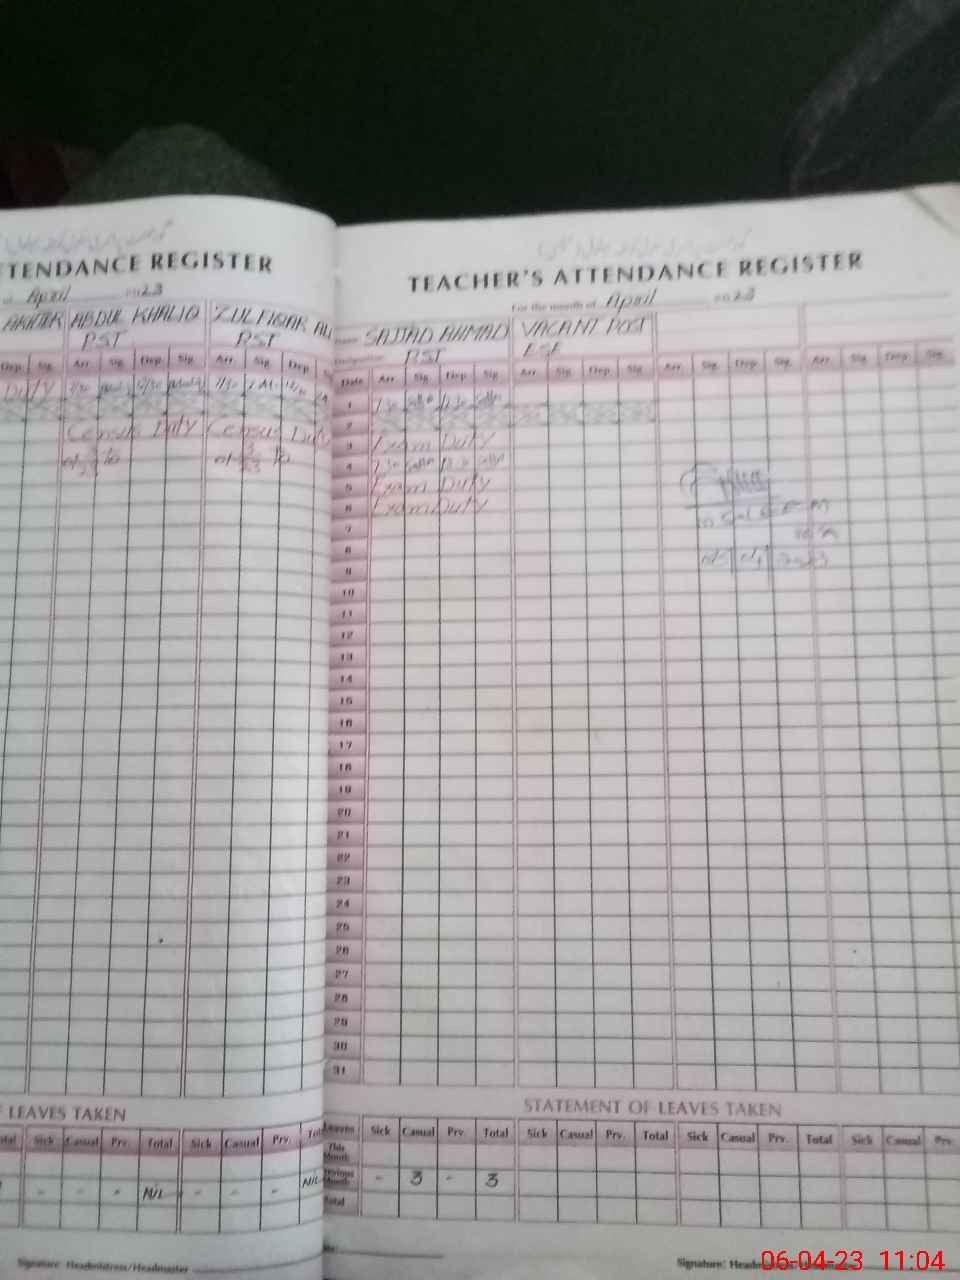 TTENDANCE REGISTER
April 2023
AKHTER ABDUL KHALIQ ZULFIQAR ALI
PST PST
Dep. Sig. Arr. Sig. Dep. Sig. Arr. Sig. Dep. S
Duty 7/30 12/30 7/30 12/30
Census Duty Census Duty
LEAVES TAKEN
Sick Casual Prv. Total Sick Casual Prv. Total
- - - NIL - - - NIL
Signature Headmistress/Headmaster
TEACHER'S ATTENDANCE REGISTER
For the month of April 2023
Name SAJJAD AHMAD VACANT POST
Designation PST ESE
Date Arr. Sig. Dep. Sig. Arr. Sig. Dep. Sig. Arr. Sig. Dep. Sig. Arr. Sig. Dep. Sig.
1
2
3 Exam Duty
4
5 Exam Duty
6 Exam Duty
7
8
9
10
11
12
13
14
15
16
17
18
19
20
21
22
23
24
25
26
27
28
29
30
31
STATEMENT OF LEAVES TAKEN
Leaves Sick Casual Prv. Total Sick Casual Prv. Total Sick Casual Prv. Total Sick Casual Prv.
This Month
Previous Month - 3 - 3
Total
Signature: Headm
06-04-23 11:04